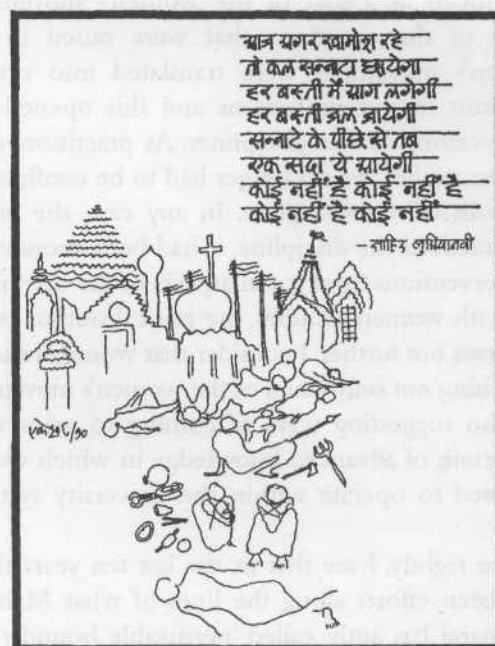 आज अगर खामोश रहे
तो कल सन्नाटा छायेगा
हर बस्ती में आग लगेगी
हर बस्ती जल जायेगी
सन्नाटे के पीछे से तब
एक सदा ये आयेगी
कोई नहीं है कोई नहीं है
कोई नहीं है कोई नहीं
- साहिर लुधियानवी